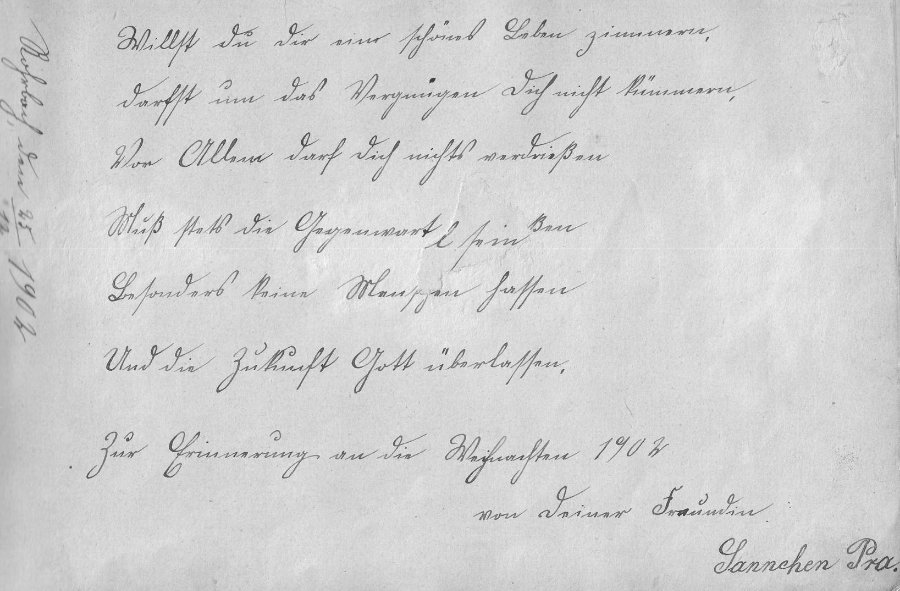 Willst du dir ein schönes Leben zimmern,
darfst um das Vergnügen Dich nicht kümmern,
Vor Allem darf dich nichts verdrießen
Muß stets die Gegenwart
Besonders keine Menschen hassen
Und die Zukunft Gott überlassen.
Zur Erinnerung an die Weihnachten 1902
von Deiner Freundin
Sannchen Pra.
den 25 1902